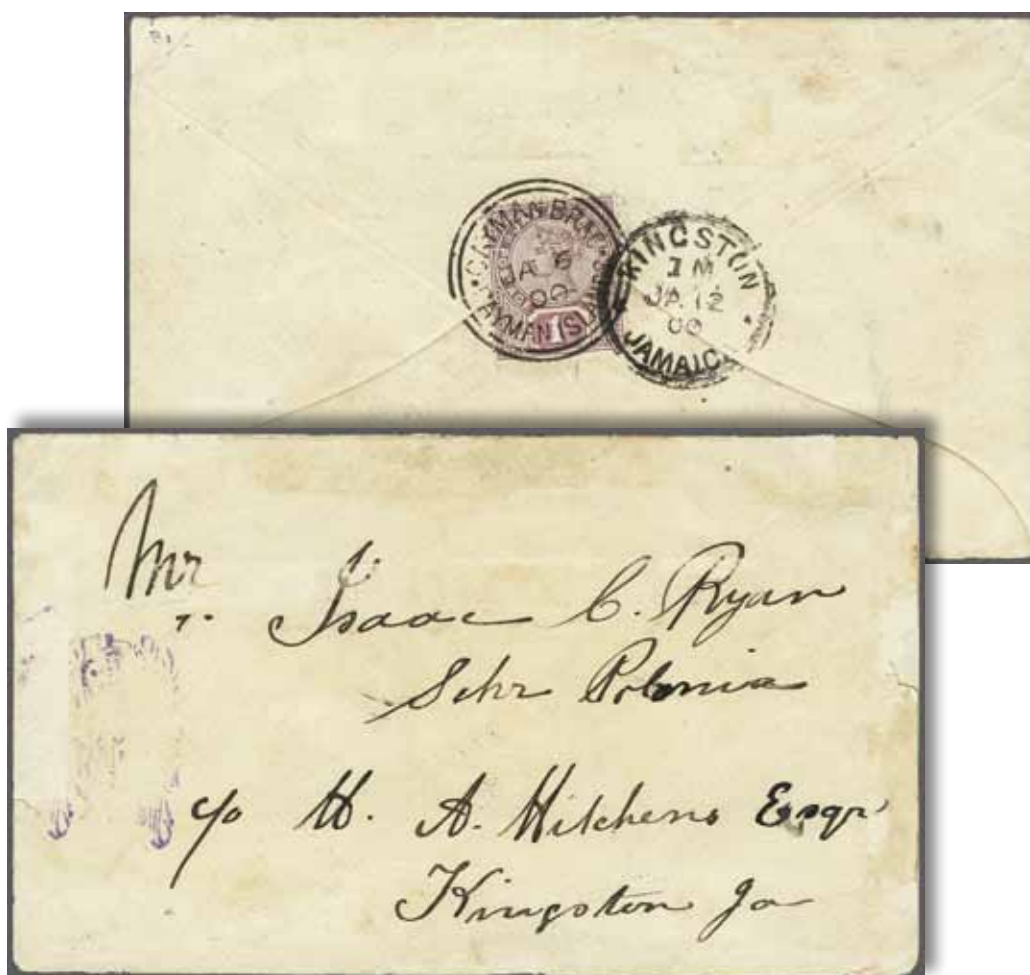 CAYMAN BRAC
JA 6
00
CAYMAN ISLANDS
1
KINGSTON
1 M
JA 12
00
JAMAICA
Mr
Isaac C. Ryan
Schr Polonia
c/o H. A. Hitchens Esqr
Kingston Ja